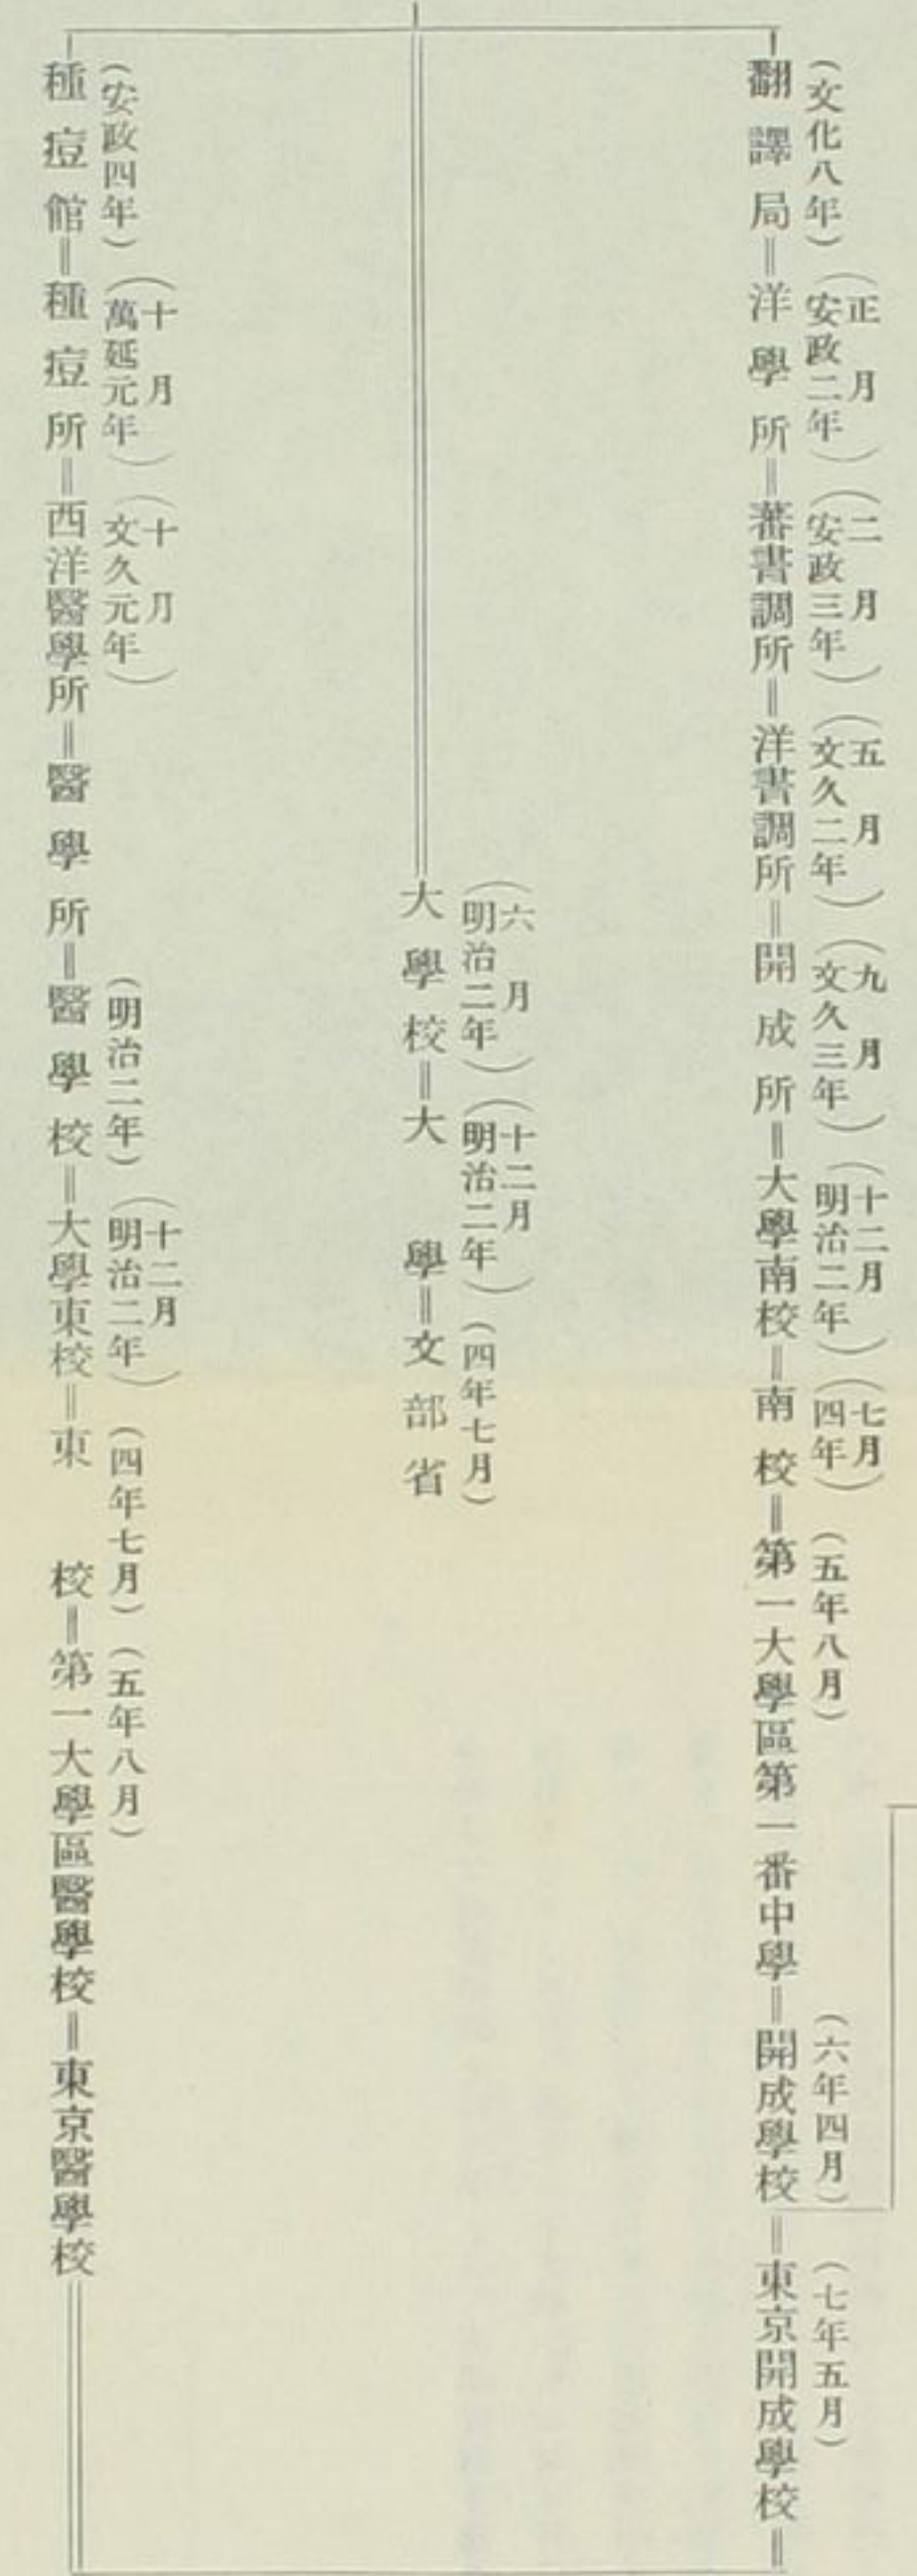 (文化八年) (安政二年正月) (安政三年二月) (文久二年五月) (文久三年九月) (明治二年十二月) (四年七月) (五年八月) (六年四月) (七年五月)
翻譯局＝洋學所＝蕃書調所＝洋書調所＝開成所＝大學南校＝南校＝第一大學區第一番中學＝開成學校＝東京開成學校＝
(明治二年六月) (明治二年十二月) (四年七月)
大學校＝大學＝文部省
(安政四年) (萬延元年十月) (文久元年十月) (明治二年) (明治二年十二月) (四年七月) (五年八月)
種痘館＝種痘所＝西洋醫學所＝醫學所＝醫學校＝大學東校＝東校＝第一大學區醫學校＝東京醫學校